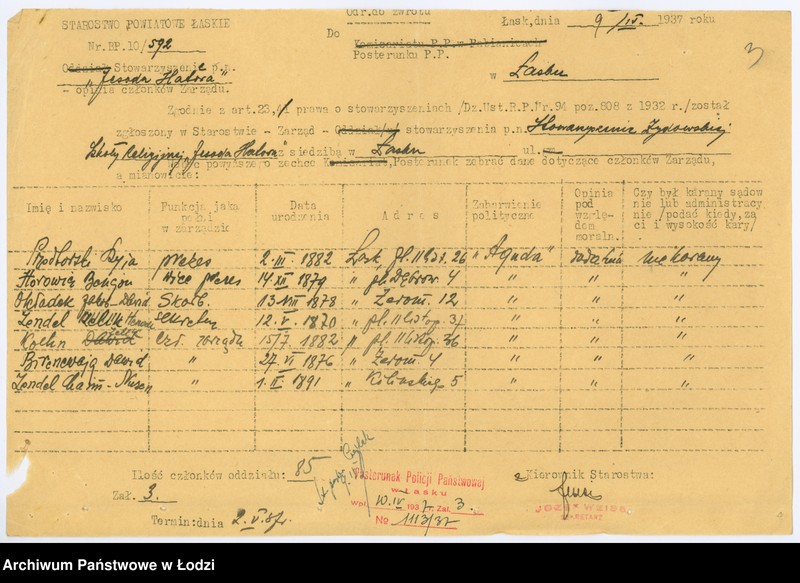 Odr.do zwrotu
STAROSTWO POWIATOWE ŁASKIE
Łask,dnia 9/IV. 1937 roku
Nr.BP.10/592
Do
Komisariatu P.P.w Pabianicach
Posterunku P.P.
3
Oddział Stowarzyszenie p.n.
"Jesoda Hatora"
w Łasku
- opinia członków Zarządu.
Zgodnie z art.23. prawa o stowarzyszeniach /Dz.Ust.R.P.Nr.94 poz.808 z 1932 r./został
zgłoszony w Starostwie - Zarząd - Oddział/u/ stowarzyszenia p.n. Żydowskiej
Szkoły Religijnej "Jesoda Hatora" z siedzibą w Łasku ul. —
powyższego zechce Komisariat,Posterunek zebrać dane dotyczące członków Zarządu,
a mianowicie:
Imię i nazwisko
Funkcja jaką pełni w zarządzie
Data urodzenia
Adres
Zabarwienie polityczne
Opinie pod wzglę- dem moraln.
Czy był karany sądow nie lub administracy nie /podać kiedy,za ci i wysokość kary/
prezes 2.III.1882 Łask pl. 11 List. 26 "Aguda" niekarany
Horowicz wice prezes 14 XII 1879 " pl. Dąbrow. 4 " " "
Dawid Skarb. 13 VIII 1878 " Żerom. 12 " " "
Zendel sekretarz 12.V.1870 " pl. 11 Listop. 37 " " "
Kochn Dawid czł. zarządu 15/7 1882 " pl. 11 Listop. 36 " " "
Birencwajg Dawid " 27 VI 1876 " Żerom. 4 " " "
Zendel Chaim-Nusen " 1.II 1891 " Kilińskieg. 5 " " "
Ilość członków oddziału: 85
Zał. 3.
Termin:dnia 2.V.37r.
Posterunek Policji Państwowej
w Łasku
Wpł. 10.IV 1937 r. Zał. 3.
No 1113/37
Kierownik Starostwa:
JÓZEF WEISS
STAROSTA
Archiwum Państwowe w Łodzi